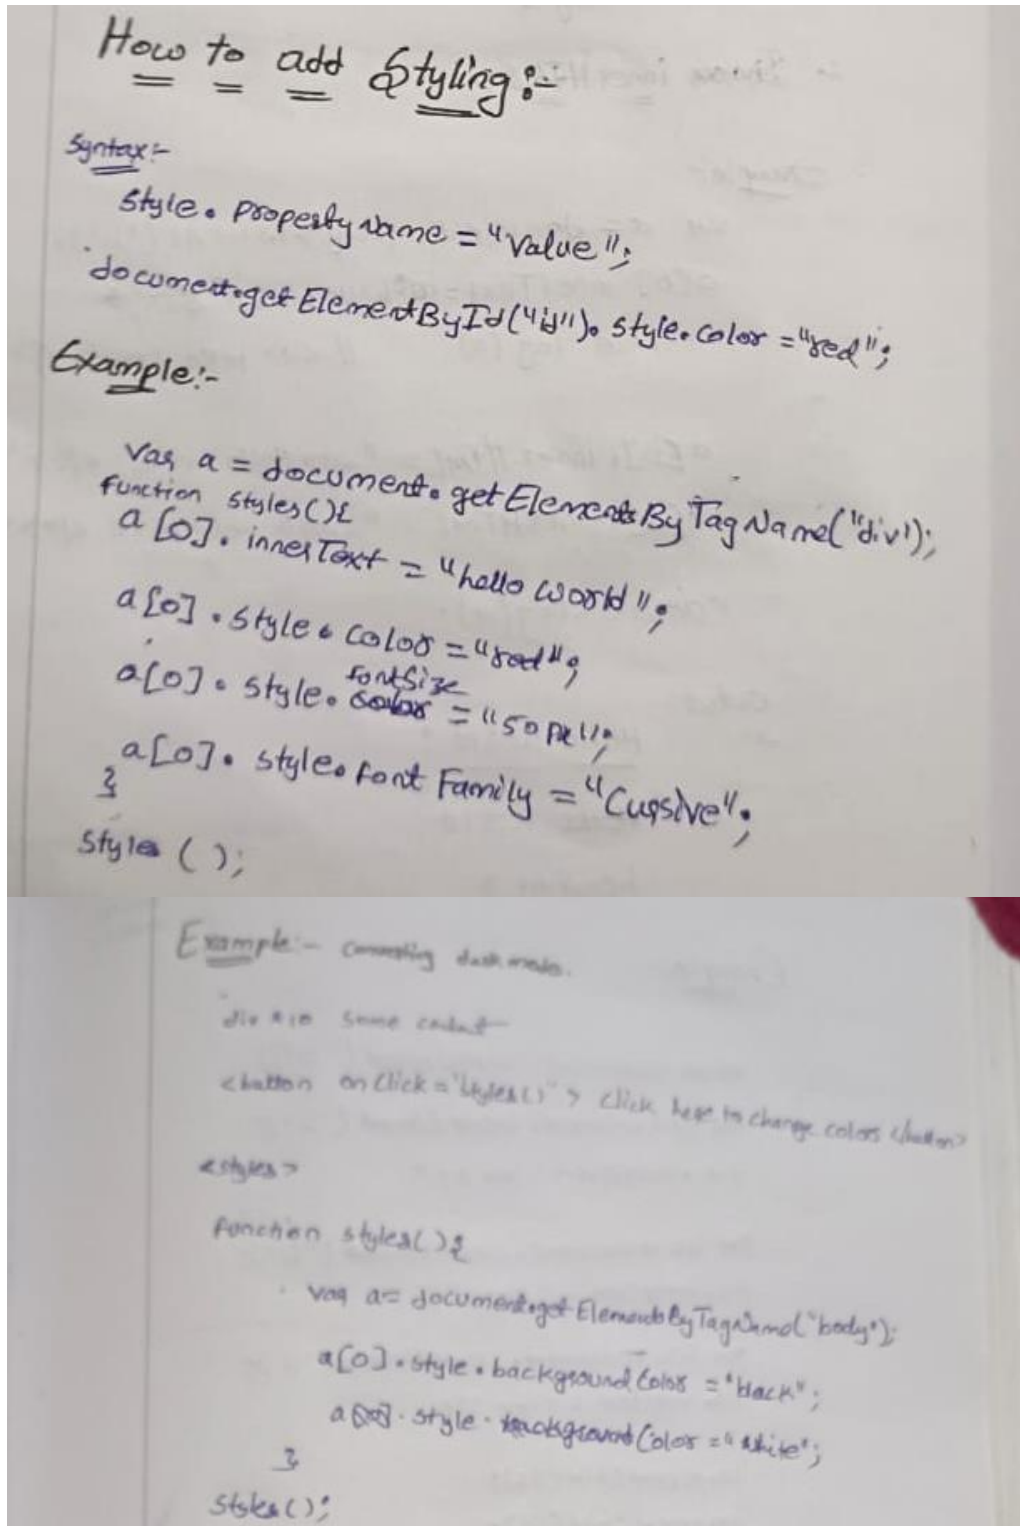 How to add Styling:-
Syntax:-
Style. PropertyName = "Value";
document.getElementById("id"). style.color = "red";
Example:-
Var a = document.getElementsByTagName("div");
function styles(){
a[0]. innerText = "hello world";
a[0]. style. color = "red";
fontSize
a[0]. style. color = "50px";
a[0]. style. font Family = "Cursive";
}
Styles ( );
Example:- dark modes.
div * 10 Some
<button onClick="styles()"> Click here to change colors </button>
<styles>
function styles(){
var a= document.getElementsByTagName("body");
a[0].style.backgroundColor = "black";
a style. Color = "white";
}
Styles();